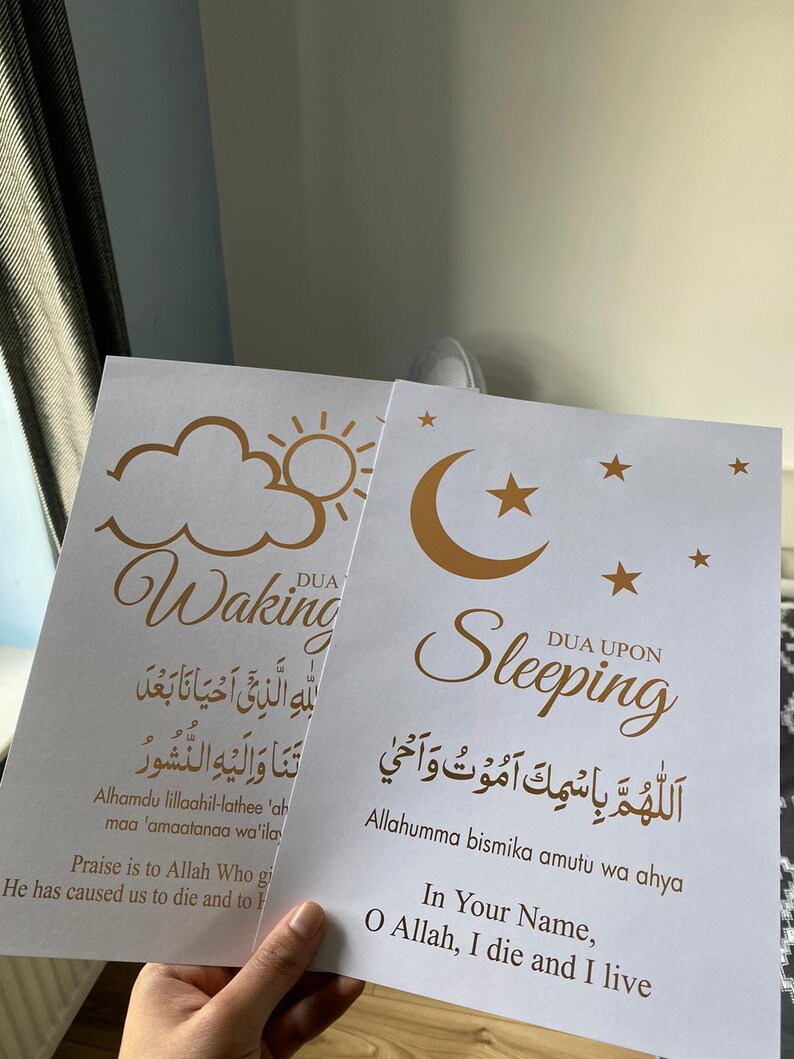 DUA
Waking
اللهِ الَّذِيْٓ اَحْيَانَا بَعْدَ
تَنَا وَاِلَيْهِ النُّشُورُ
Alhamdu lillaahil-lathee 'ah
maa 'amaatanaa wa'ilay
Praise is to Allah Who gi
He has caused us to die and to H
DUA UPON
Sleeping
اَللّٰهُمَّ بِاسْمِكَ اَمُوْتُ وَاَحْيٰ
Allahumma bismika amutu wa ahya
In Your Name,
O Allah, I die and I live